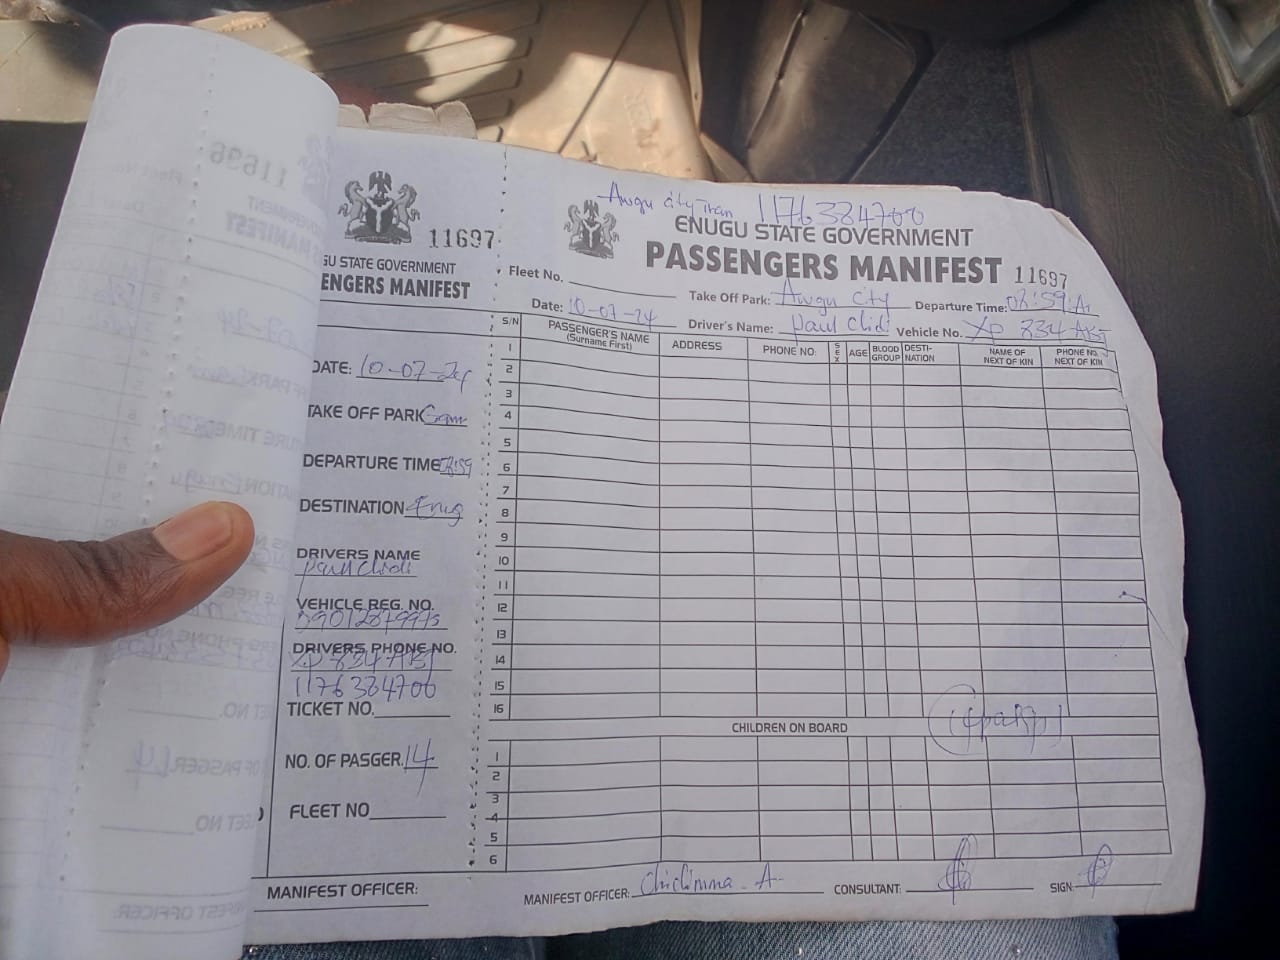 11696
11697
GU STATE GOVERNMENT
ENGERS MANIFEST
DATE: 10-07-24
TAKE OFF PARK
DEPARTURE TIME 08:59
DESTINATION Enug
DRIVERS NAME
Paul Chidi
VEHICLE REG. NO.
DRIVERS PHONE NO.
XP 834 ABJ
1176384700
TICKET NO.
NO. OF PASGER. 14
FLEET NO
MANIFEST OFFICER:
Awgu city Tran 1176384700
ENUGU STATE GOVERNMENT
PASSENGERS MANIFEST 11697
Fleet No. Take Off Park: Awgu city Departure Time: 08:59
Date: 10-07-24 Driver's Name: Paul Chidi Vehicle No. XP 834 ABJ
S/N PASSENGER'S NAME (Surname First) ADDRESS PHONE NO: SEX AGE BLOOD GROUP DESTI-NATION NAME OF NEXT OF KIN PHONE NO. NEXT OF KIN
1
2
3
4
5
6
7
8
9
10
11
12
13
14
15
16
CHILDREN ON BOARD
1
2
3
4
5
6
MANIFEST OFFICER: Chidimma A. CONSULTANT: SIGN: